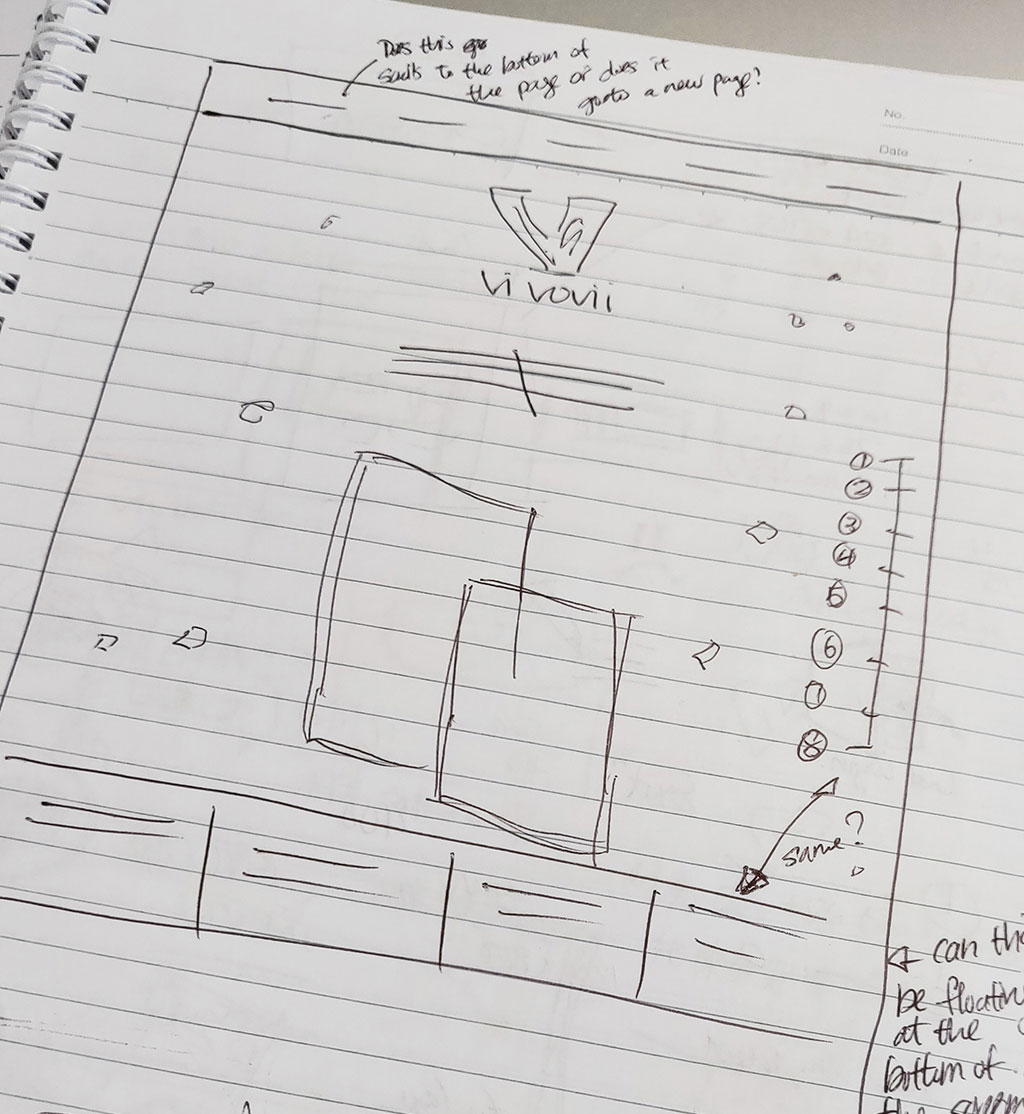 Does this
to the bottom of
the page or does it
goto a new page?
No.
Date
Vi VOVii
1
2
3
4
5
6
7
8
same?
can th
be floatin
at the
bottom of
the